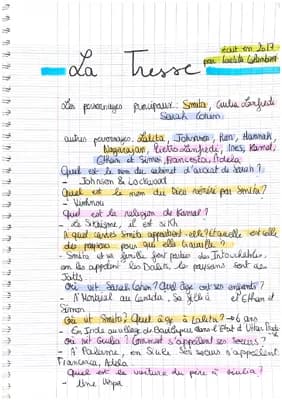 écrit en 2017
par Laetitia Colombani
La Tresse
Les personnages principaux: Smita, Giulia Lanfredi
Sarah Cohen.
autres personnages: Lalita, Johnson, Ron, Hannah,
Nagarajan, Pietro Lanfredi, Ines, Kamal,
Ethan et Simon, Francesca, Adela
Quel est le nom du cabinet d'avocat de Sarah ?
- Johnson & Lockwood
Quel est le nom du Dieu vénéré par Smita ?
- Vishnou
Quel est la religion de Kamal ?
- Le Sikhisme, il est sikh
A quel castes Smita appartient-elle? Et quelle est celle
des paysans pour qui elle travaille ?
- Smita et sa famille font parties des Intouchables,
on les appellent les Dalits, les paysans sont des
Jatts
Où vit Sarah Cohen? Quel âge ont ses enfants ?
- A Montréal au Canada, sa fille à et Ethan et
Simon
Où vit Smita? Quel âge à Lalita? → 6 ans
- En Inde au village de Badlapur dans l'Etat d'Uttar Pradesh
Où vit Giulia? Comment s'appellent ses soeurs ?
- A Palerme, en Sicile. Ses soeurs s'appellent
Francesca, Adela
Quel est la voiture du père à Giulia ?
- Une Vespa